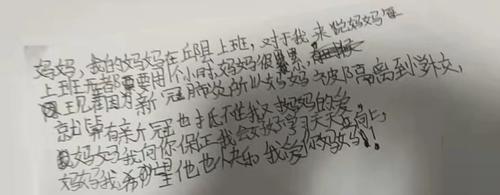 妈妈,我的妈妈在丘县上班,对于我来说妈妈每
上班天都要用个小时,妈妈很累,
现在因为新冠肺炎所以妈妈被隔离到学校,
就算有新冠也抵不住我对妈妈的爱
妈妈我向你保证我会好好学习天天向上
妈妈我希望他也快乐我爱你妈妈!